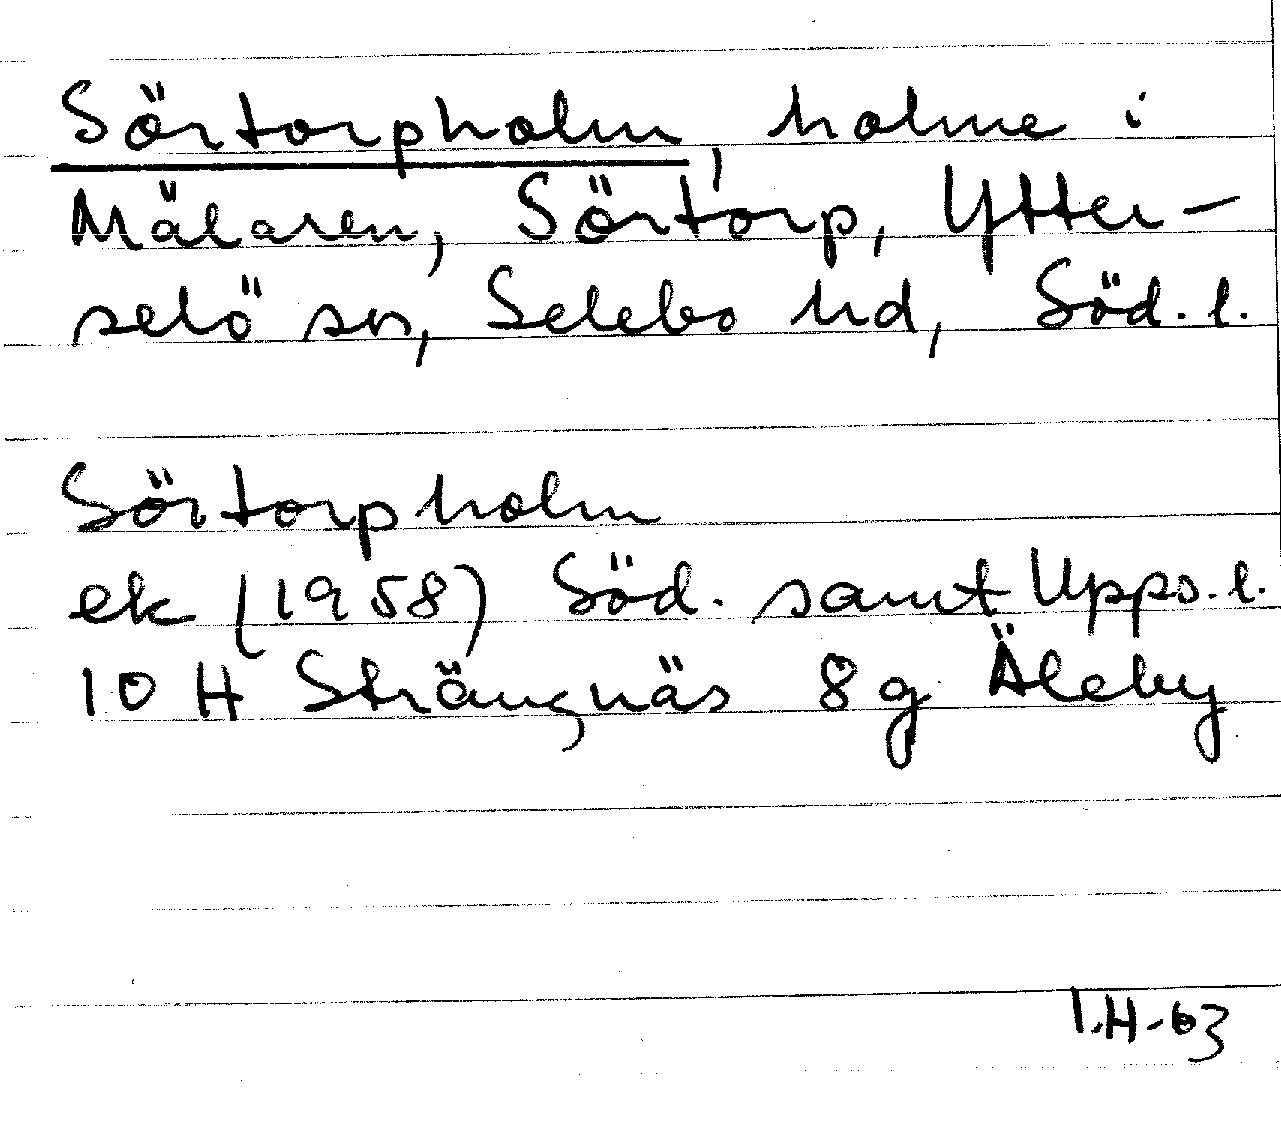 Sörtorpholm, holme i
Mälaren, Sörtorp, Ytter-
selö sn, Selebo hd, Söd. l.
Sörtorpholm
ek (1958) Söd. samt Upps. l.
10 H Strängnäs 8 g Äleby
I.H-63